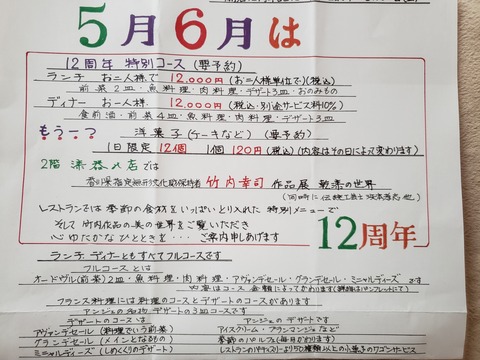 5月6月は
12周年 特別コース (要予約)
ランチ お二人様で 12,000円 (お二人様単位で)(税込)
前菜2皿・魚料理・肉料理・デザート3皿・おのみもの
ディナー お一人様 12,000円 (税込・別途サービス料10%)
食前酒・前菜4皿・魚料理・肉料理・デザート3皿
もう一つ 洋菓子(ケーキなど) (要予約)
1日限定 12個 1個 120円(税込)(内容はその日によって変わります)
2階 漆器の店では
香川県指定無形文化財保持者 竹内幸司 作品展 乾漆の世界
(同時に伝統工芸士
レストランでは季節の食材をいっぱいとり入れた特別メニューで
そして竹内作品の美の世界をご覧いただき
心ゆたかなひとときを・・・ご案内申しあげます
12周年
ランチ ディナーともすべてフルコースです
フルコースとは
オードヴル(前菜)2皿・魚料理・肉料理・アヴァンデセール・グランデセール・ミニャルディーズ です
内容はコース金額によってかわります(詳細はパンフレットにて)
フランス料理には料理のコースとデザートのコースがあります
アンジェの名物デザートの3皿コースです
デザートのコースは アンジェのデザートです
アヴァンデセール (料理でいう前菜) アイスクリーム・ブランマンジェなど
グランデセール (メインとなるもの) 季節のパルフェ(毎月かわります)
ミニャルディーズ (しめくくりのデザート) レストランのパティスリーより50種類以上の小菓子のワゴンサービス